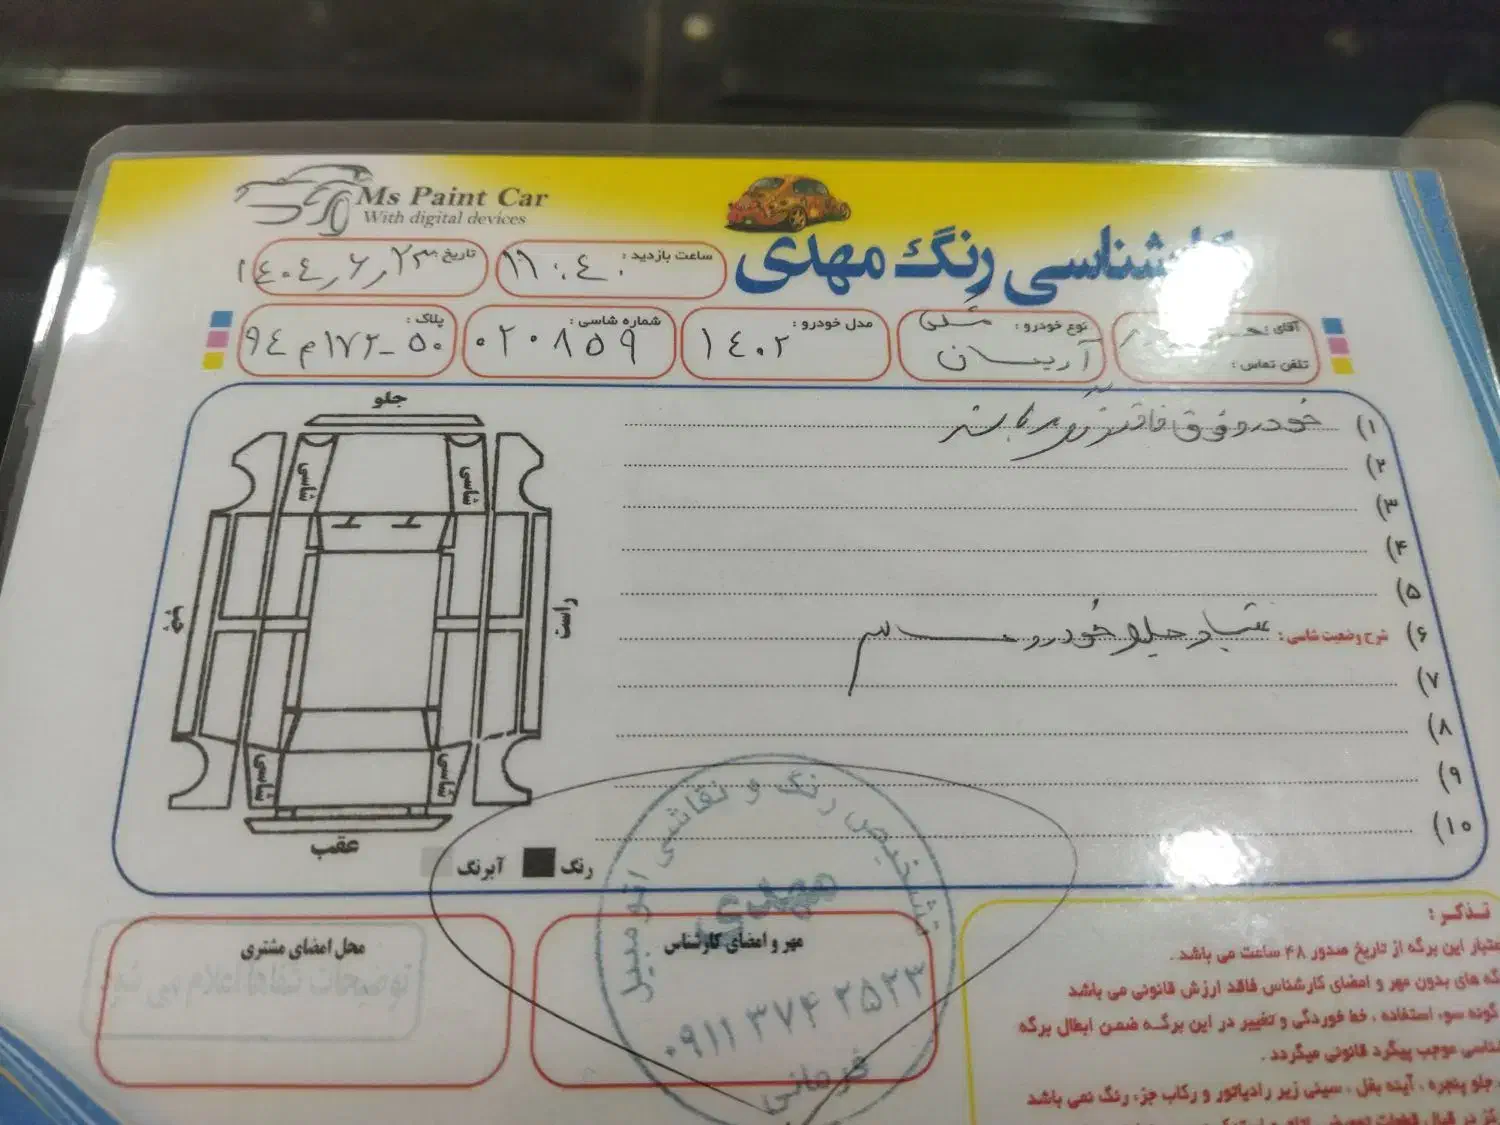 Ms Paint Car
With digital devices
کارشناسی رنگ مهدی
ساعت بازدید : ۱۱:۴۰
تاریخ : ۱۴۰۴,۶,۲۳
آقای :
تلفن تماس :
نوع خودرو : مشکی
آریسان
مدل خودرو : ۱۴۰۲
شماره شاسی : ۰۲۰۸۵۹
پلاک : ۵۰-۱۷۲م۹۴
جلو
شاسی
شاسی
چپ
راست
شاسی
شاسی
عقب
رنگ
آبرنگ
۱) خودرو فوق فاقد رنگ می باشد
۲)
۳)
۴)
۵)
۶) شرح وضعیت شاسی : جلو خودرو سالم
۷)
۸)
۹)
۱۰)
تشخیص رنگ و نقاشی اتومبیل
مهدی
۰۹۱۱ ۳۷۴ ۲۵۲۳
قرمانی
مهر و امضای کارشناس
محل امضای مشتری
تذکر :
اعتبار این برگه از تاریخ صدور ۴۸ ساعت می باشد .
های بدون مهر و امضای کارشناس فاقد ارزش قانونی می باشد
گونه سوء استفاده ، خط خوردگی و تغییر در این برگه ضمن ابطال برگه
موجب پیگرد قانونی میگردد .
جلو پنجره ، آینه بغل ، سینی زیر رادیاتور و رکاب جزء رنگ نمی باشد